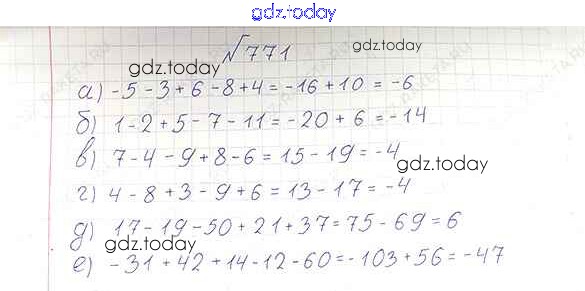 gdz.today
√771
gdz.today
gdz.today
а) -5-3+6-8+4=-16+10=-6
б) 1-2+5-7-11=-20+6=-14
в) 7-4-9+8-6=15-19=-4
gdz.today
г) 4-8+3-9+6=13-17=-4
д) 17-19-50+21+37=75-69=6
gdz.today
е) -31+42+14-12-60=-103+56=-47